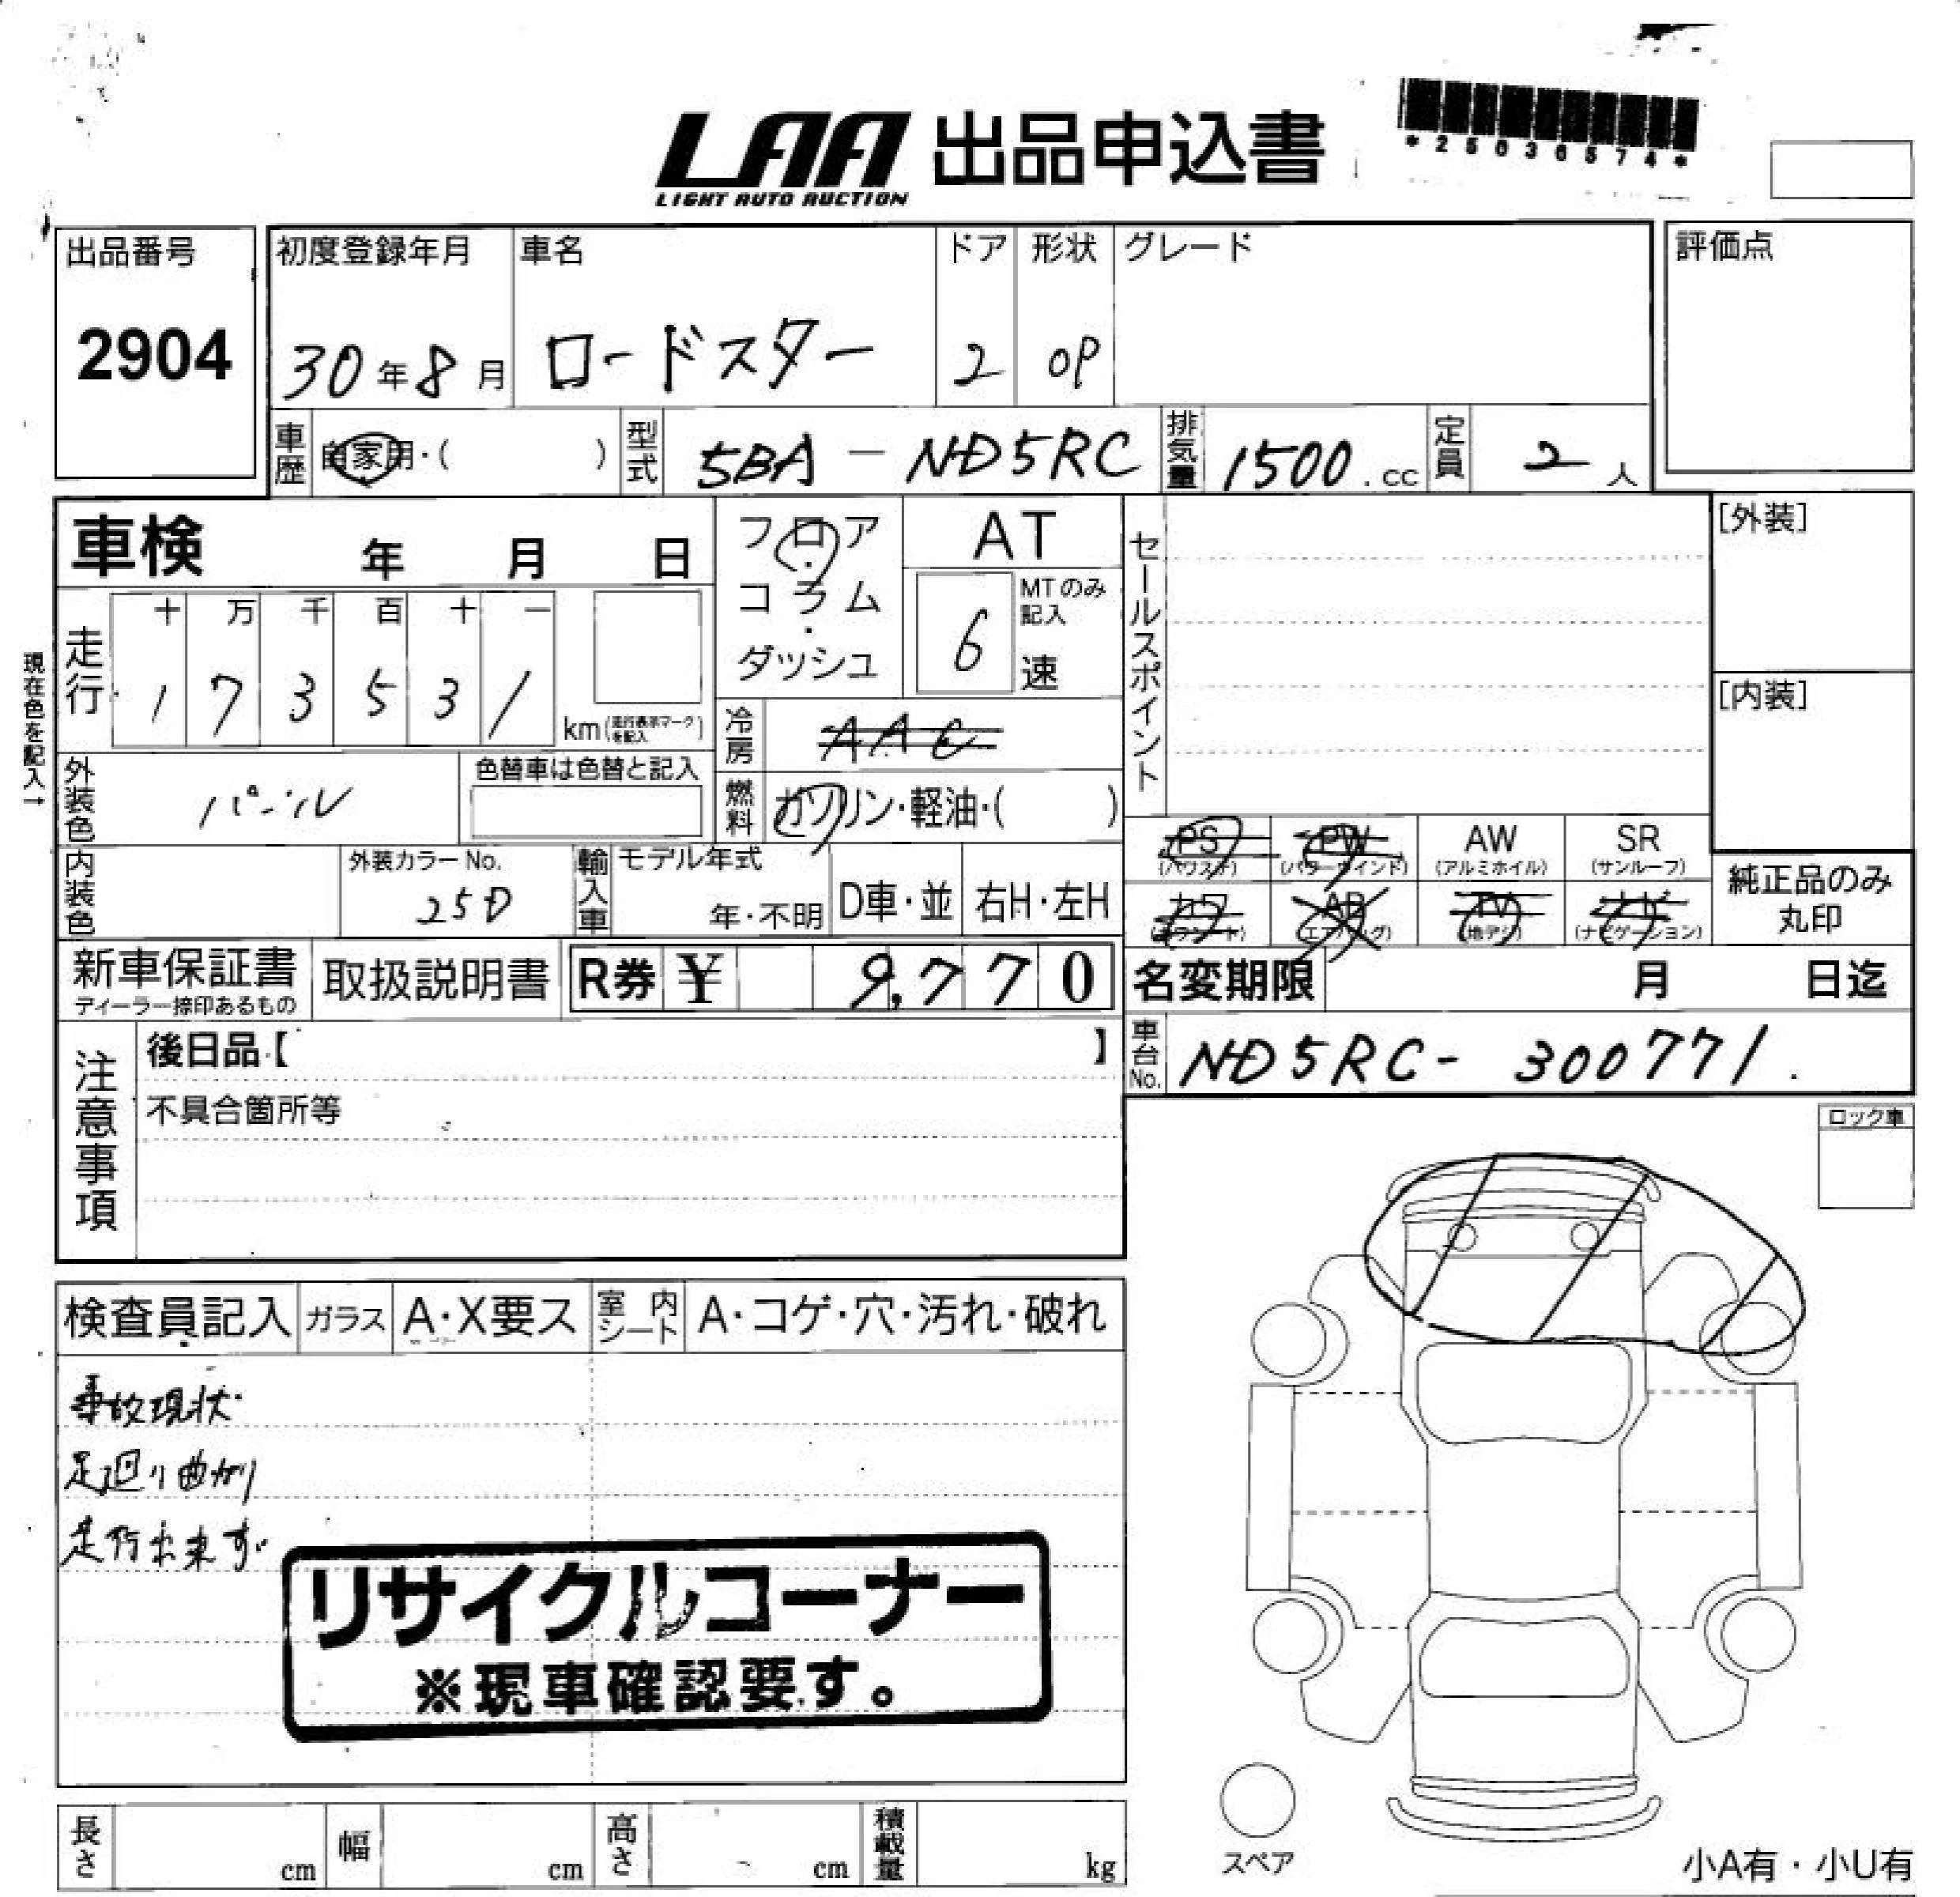 LAA 出品申込書
LIGHT AUTO AUCTION
*25036574*
出品番号
2904
初度登録年月
30年8月
車名
ロードスター
ドア
2
形状
OP
グレード
評価点
車歴 自家用・( )
型式 5BA-ND5RC
排気量 1500.cc
定員 2人
車検 年 月 日
フロア・コラム・ダッシュ
AT
MTのみ記入
6速
セールスポイント
[外装]
[内装]
現在色を記入→
走行
十 万 千 百 十 一
1 7 3 5 3 1
km(走行表示マークを記入)
冷房 AAC
外装色 パール
色替車は色替と記入
燃料 ガソリン・軽油・( )
内装色
外装カラーNo.
25D
輸入車
モデル年式
年・不明
D車・並
右H・左H
PS (パワステ)
PW (パワーウインド)
AW (アルミホイル)
SR (サンルーフ)
カワ
AB (エアバッグ)
TV (地デジ)
ナビ (ナビゲーション)
純正品のみ丸印
新車保証書
ディーラー捺印あるもの
取扱説明書
R券 ¥ 9,770
名変期限 月 日迄
車台No. ND5RC-300771.
注意事項
後日品【 】
不具合箇所等
ロック車
検査員記入
ガラス A・X要ス
室内シート A・コゲ・穴・汚れ・破れ
事故現状
足廻り曲がり
走行出来ず
リサイクルコーナー
※現車確認要す。
スペア
小A有・小U有
長さ cm
幅 cm
高さ cm
積載量 kg